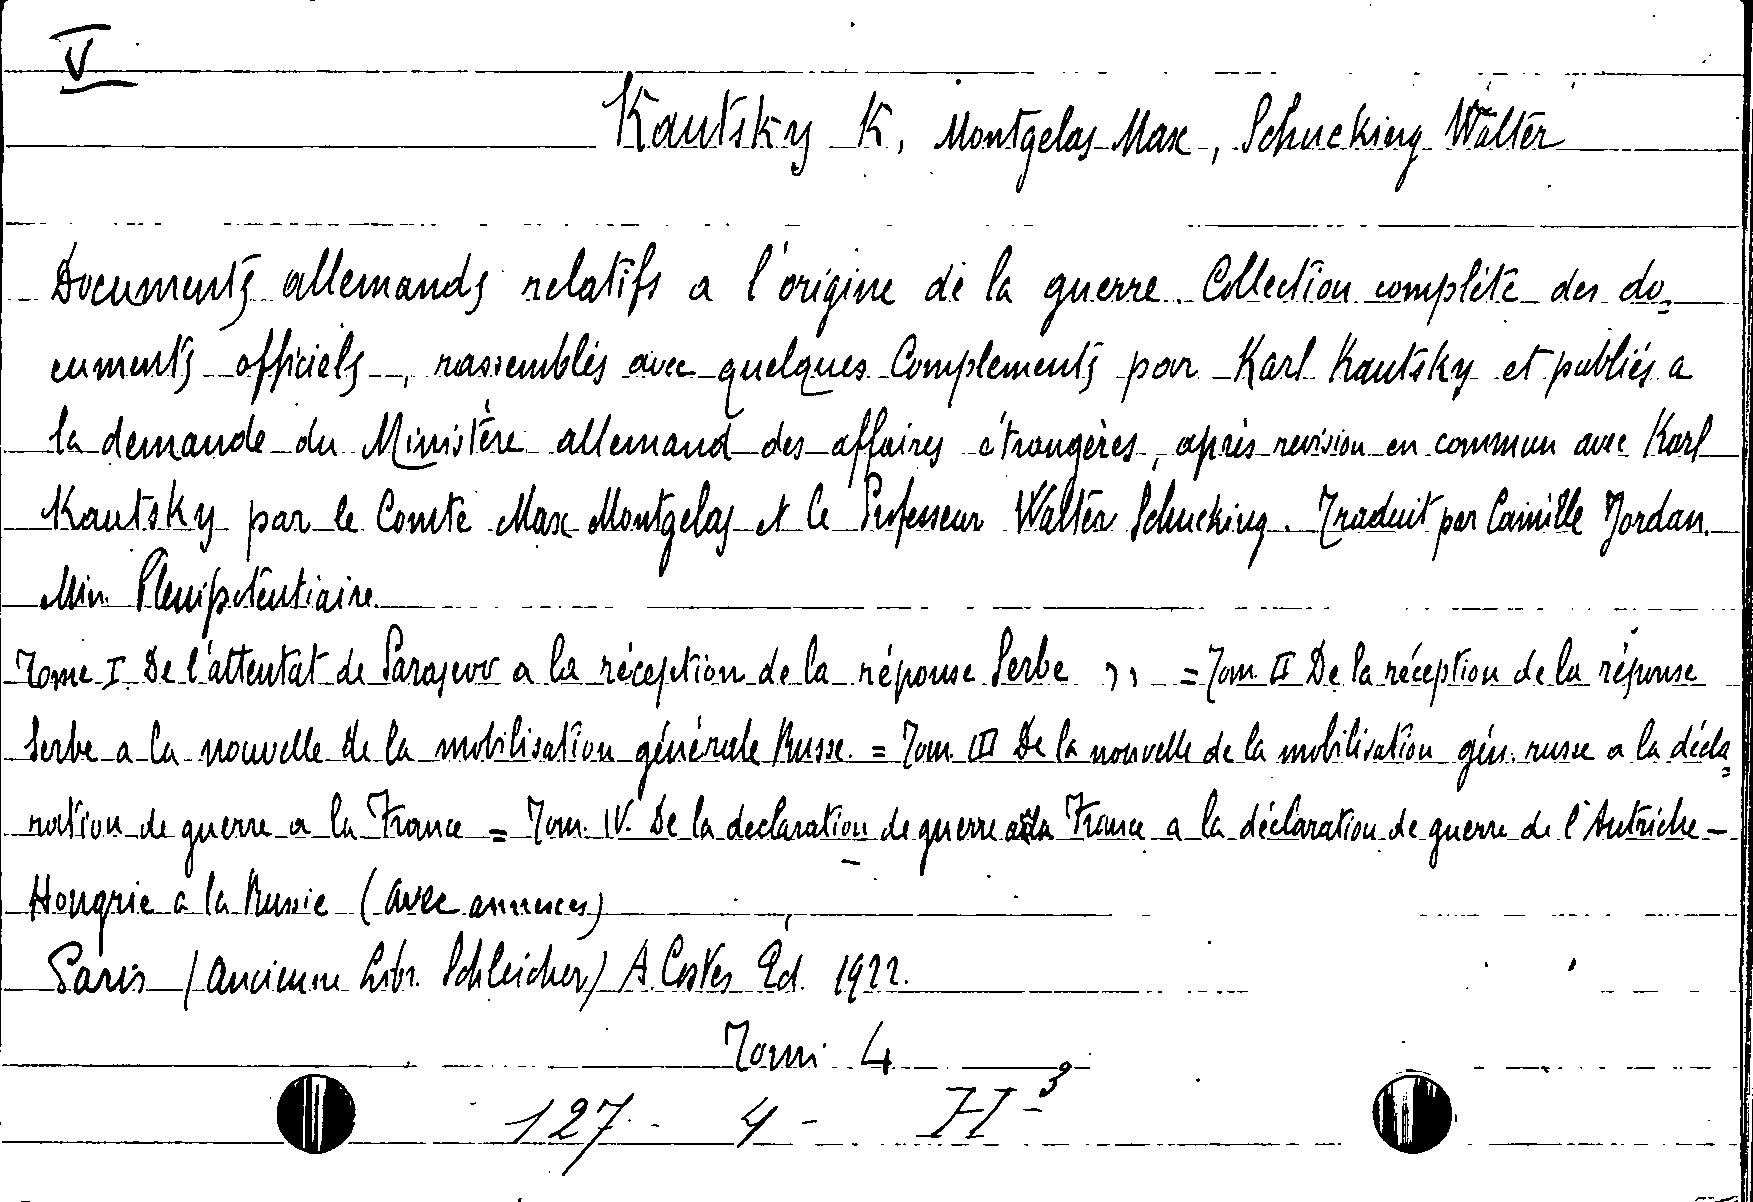 V
Kautsky K, Montgelas Max, Schucking Walter
Documents allemands relatifs a l'origine de la guerre. Collection complète des do-
cuments officiels, rassemblés avec quelques Complements par Karl Kautsky et publiés a
la demande du Ministère allemand des affaires étrangères, après revision en commun avec Karl
Kautsky par le Comte Max Montgelas et le Professeur Walter Schucking. Traduit par Camille Jordan.
Min. Plenipotentiaire
Tome I. De l'attentat de Sarajevo a la réception de la réponse Serbe ,, = Tom. II De la réception de la réponse
Serbe a la nouvelle de la mobilisation générale Russe. = Tom. III De la nouvelle de la mobilisation gén. russe a la décla=
ration de guerre a la France = Tom. IV. De la declaration de guerre a la France a la déclaration de guerre de l'Autriche-
Hongrie a la Russie (avec annexes)
Paris (Ancienne Libr. Schleicher) A. Costes Ed. 1922.
Tomi 4
127 - 4 - H-3